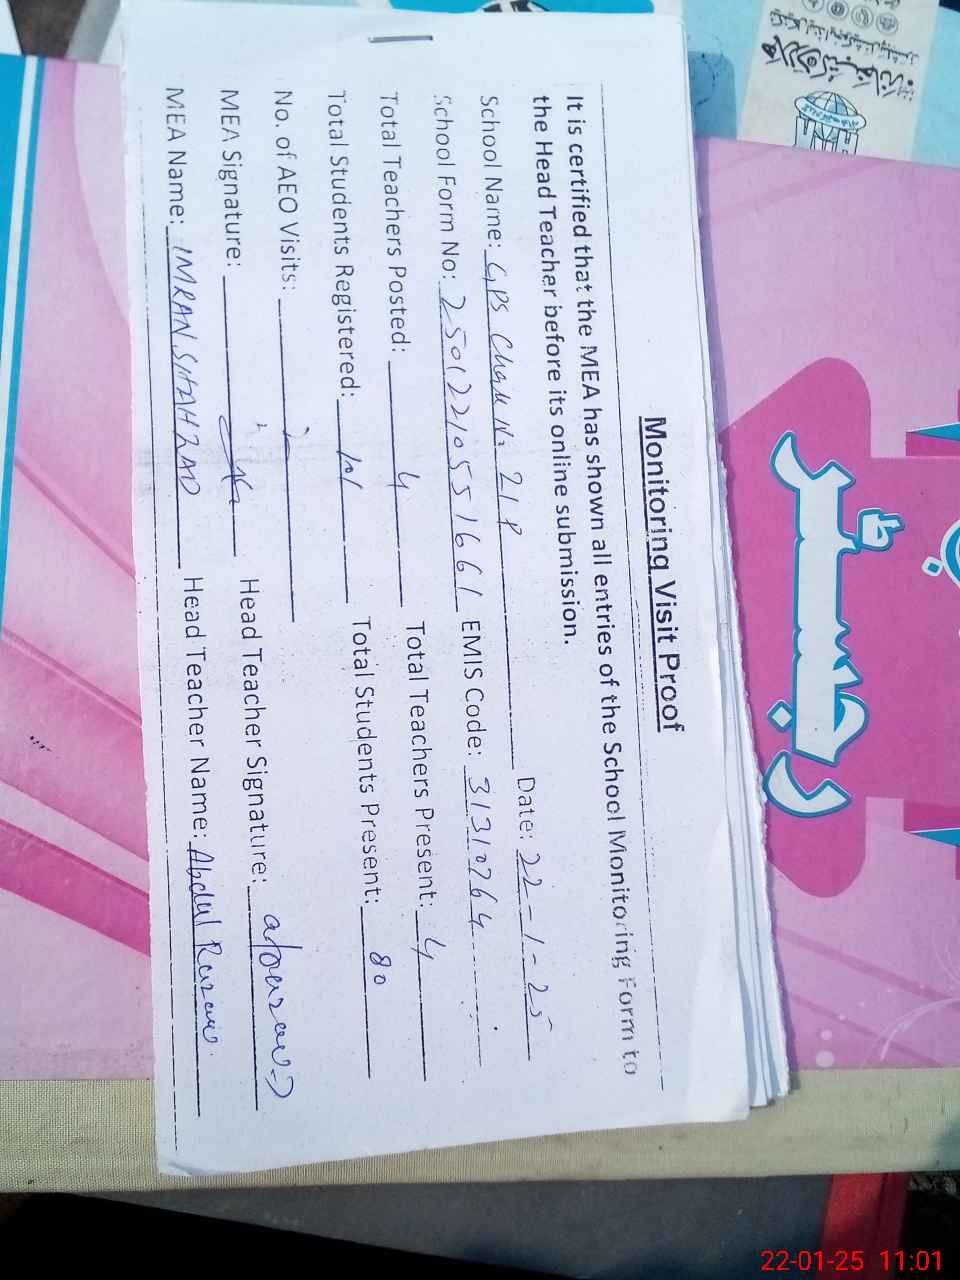 Monitoring Visit Proof
It is certified that the MEA has shown all entries of the School Monitoring Form to
the Head Teacher before its online submission.
School Name: GPS Chak No 21P Date: 22-1-25
School Form No: 25012210551661 EMIS Code: 31310764
Total Teachers Posted: 4 Total Teachers Present: 4
Total Students Registered: 101 Total Students Present: 80
No. of AEO Visits:
MEA Signature: Head Teacher Signature:
MEA Name: IMRAN SHAHZAD Head Teacher Name: Abdul
رجسٹر
22-01-25 11:01